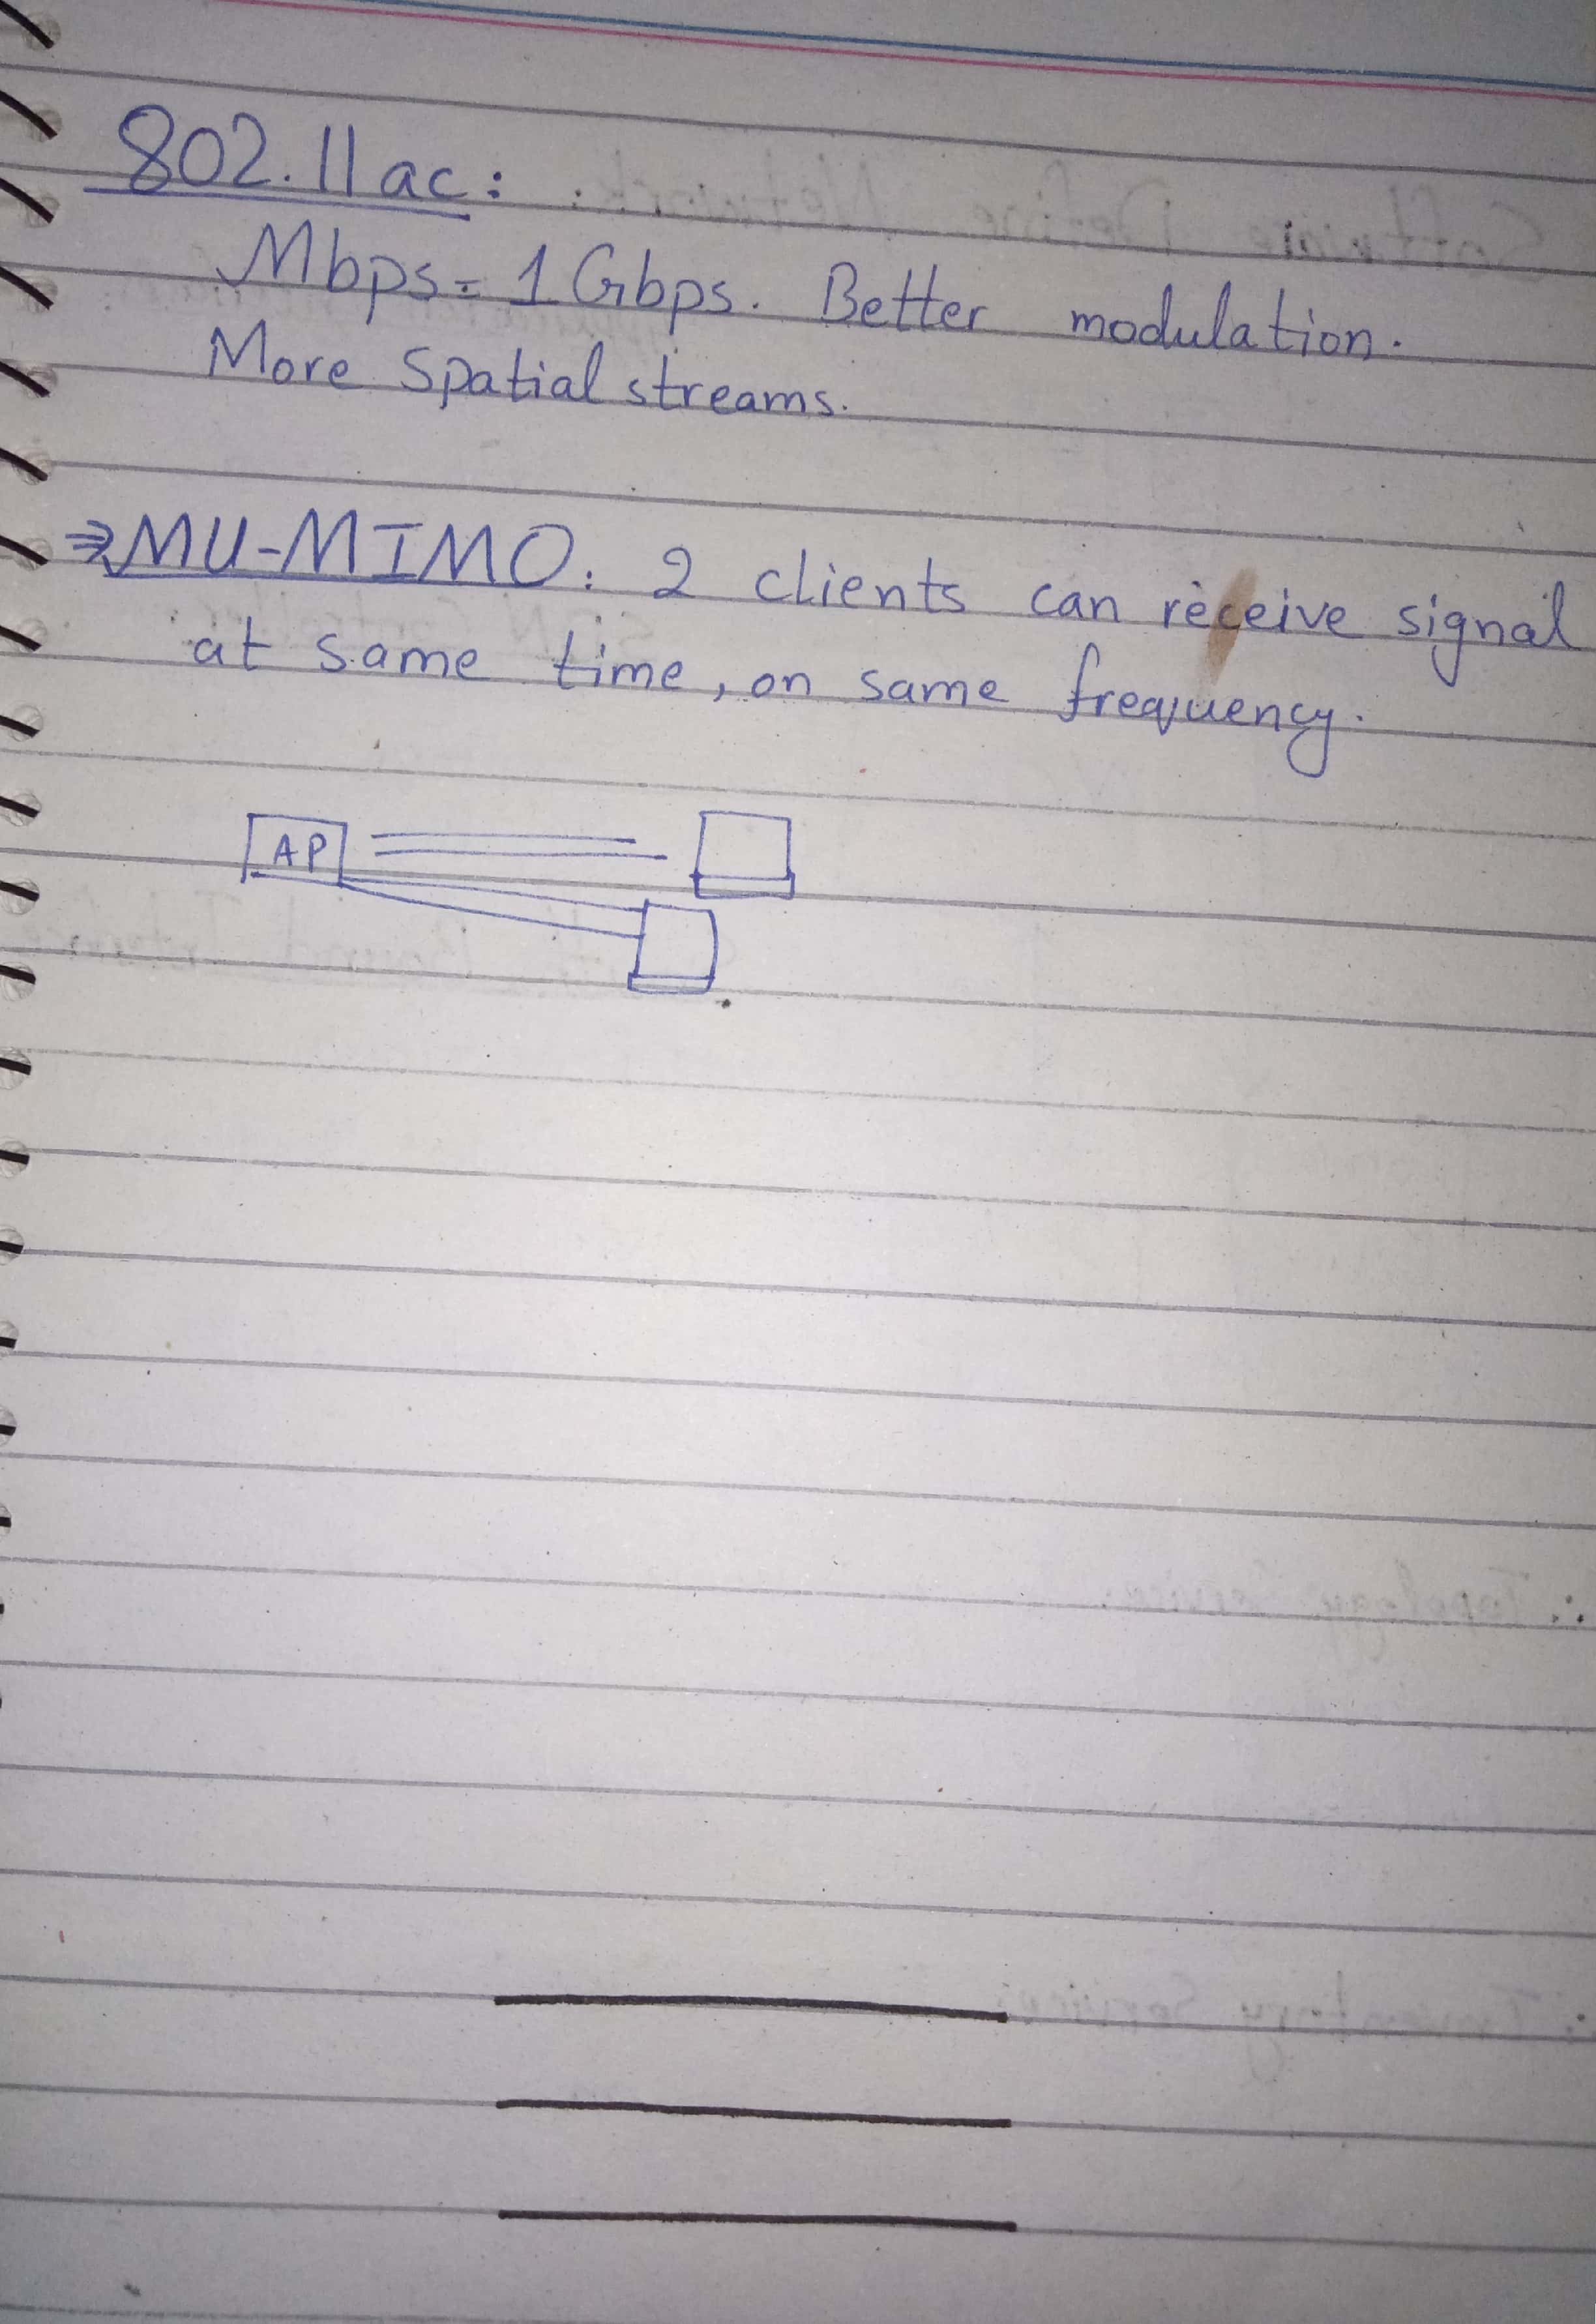 802.11ac:
Mbps = 1 Gbps. Better modulation.
More Spatial streams.
⇒ MU-MIMO: 2 clients can receive signal
at same time, on same frequency.
AP